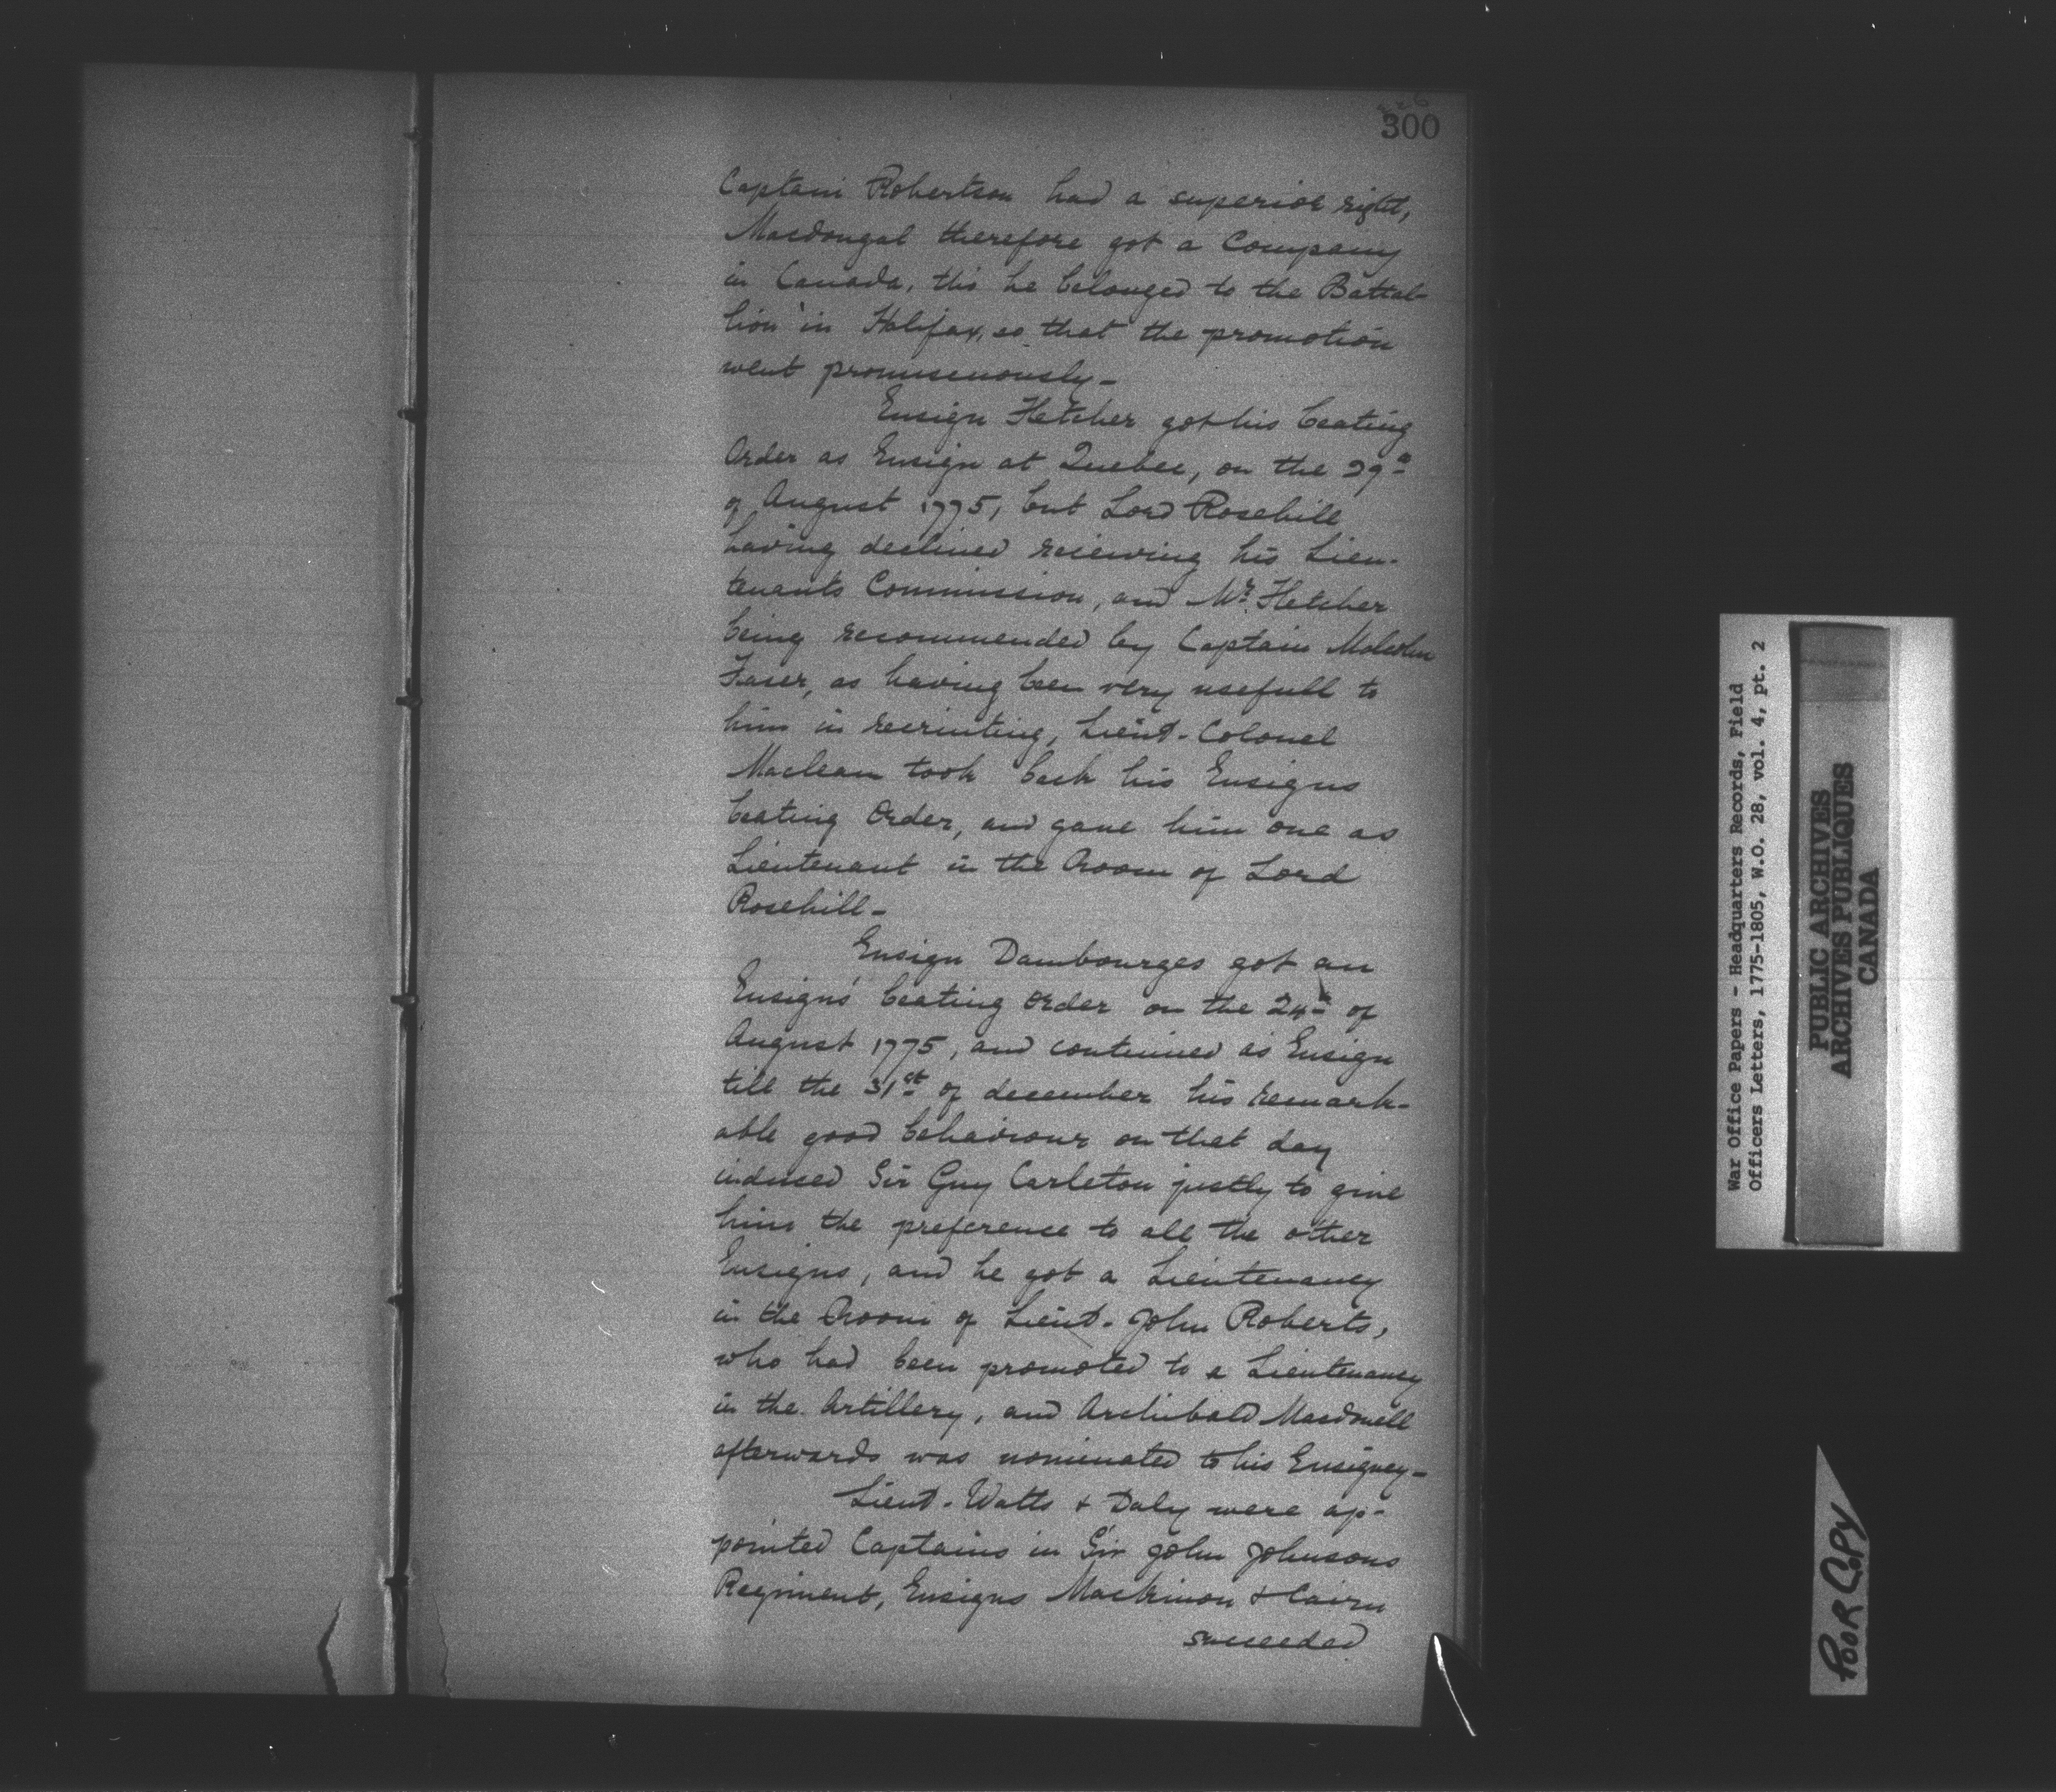 300
Captain Robertson had a superior right,
Macdougal therefore got a Company
in Canada, tho' he belonged to the Battal-
lion in Halifax, so that the promotion
went promiscuously-
Ensign Fletcher got his beating
Order as Ensign at Quebec, on the 29th
of August 1775, but Lord Rosehill
having declined receiving his Lieu-
tenants Commission, and Mr. Fletcher
being recommended by Captain Malcolm
Fraser, as having been very usefull to
him in recruiting, Lieut-Colonel
Maclean took back his Ensigns
beating Order, and gave him one as
Lieutenant in the Room of Lord
Rosehill-
Ensign Dambourges got an
Ensigns' beating Order on the 24th of
August 1775, and continued as Ensign
till the 31st of december his remark-
able good behaviour on that day
induced Sir Guy Carleton justly to give
him the preference to all the other
Ensigns, and he got a Lieutenancy
in the Room of Lieut. John Roberts,
who had been promoted to a Lieutenancy
in the Artillery, and Archibald Macdonell
afterwards was nominated to his Ensigncy-
Lieut. Watts & Daly were ap-
pointed Captains in Sir John Johnsons
Regiment, Ensigns Mackinnon & Cairn
succeeded
War Office Papers - Headquarters Records, Field
Officers Letters, 1775-1805, W.O. 28, vol. 4, pt. 2
PUBLIC ARCHIVES
ARCHIVES PUBLIQUES
CANADA
POOR COPY